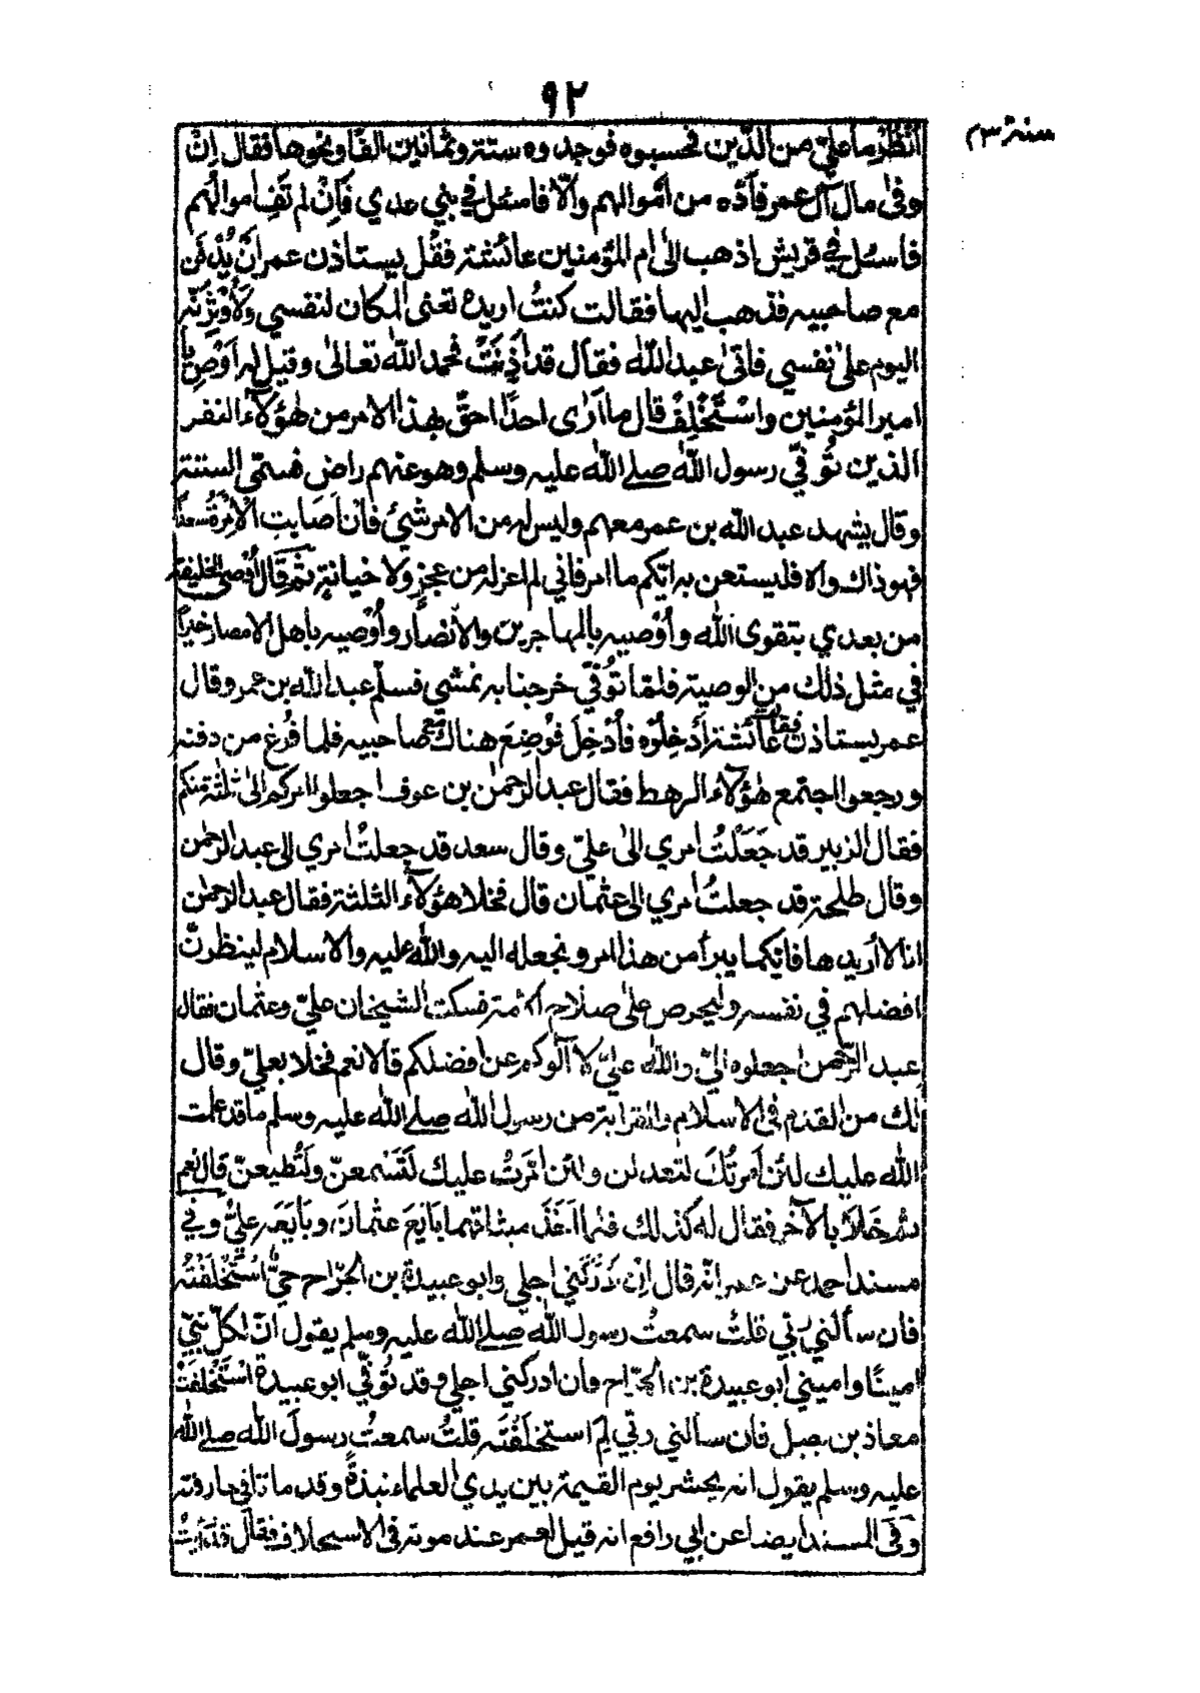 ٩٢
سنة ٢٣
انْظُرْ ما عليّ من الدَّين فحسبوه فوجدوه ستة وثمانين الفًا ونحوها فقال اِنْ
وفى مال آل عمر فأدّه من اموالهم والّا فاسئل في بني عدي فَاِنْ لم تَفِ اموالُهم
فاسئل في قريش اذهب الىٰ ام المؤمنين عائشة فقُل يستاذن عمر اَنْ يُدْفَن
مع صاحبيه فذهب اليها فقالت كنتُ اريده تعنى المكان لنفسي ولَأُوْثِرَنَّه
اليوم علىٰ نفسي فاتىٰ عبد الله فقال قد أَذِنَتْ فحمد الله تعالىٰ وقيل له اَوْصِ يا
امير المؤمنين واسْتَخْلِفْ قال ما آرٰى احدًا احقَّ بهذا الامر من هٰؤلآء النفر
الذين تُوُفّي رسول الله صلے الله عليه وسلم وهو عنهم راض فسمّى الستة
وقال يشهد عبد الله بن عمر معهم وليس له من الامر شئ فان اَصَابتِ الْاِمْرَةُ سعدًا
فهو ذاك والا فليستعن به ايّكم ما امر فاني لم اعزله من عجز ولا خيانة ثم قال اُوْصى الخليفة
من بعدي بتقوى الله واُوْصيه بالمهاجرين والانصار واُوْصيه باهل الامصار خيرًا
في مثل ذٰلك من الوصية فلمّا تُوُفّي خرجنا به نمشي فسلّم عبد الله بن عمر وقال
عمر يستاذن فقالت عائشة اَدْخِلُوْه فاُدْخِلَ فوُضِعَ هناك مع صاحبيه فلما فُرغ من دفنه
ورجعوا اجتمع هٰؤلآء الرهط فقال عبد الرحمٰن بن عوف اجعلوا امركم الىٰ ثلٰثة منكم
فقال الزبير قد جَعَلْتُ امري الىٰ عليّ وقال سعد قد جعلتُ امري الى عبد الرحمٰن
وقال طلحة قد جعلتُ امري الى عثمان قال فخلا هؤلآء الثلثة فقال عبد الرحمٰن
انا لا اُريدها فايّكما يبرأ من هذا الامر ونجعله اليه والله عليه والاسلام لينظرنّ
افضلهم في نفسه وليحرص على صلاح الامة فسكت الشيخان عليّ وعثمان فقال
عبد الرّحمٰن اجعلوه اليّ والله عليّ لا آلوكم عن افضلكم قالا نعم فخلا بعليّ وقال
لك من القدم فى الاسلام والقرابة من رسول الله صلے الله عليه وسلم ما قد علمت
الله عليك لئن اَمرتُكَ لتعدلن ولئن امّرتُ عليك لَتَسْمعنّ ولَتُطيعنّ قال نعم
ثم خَلَا بالآخر فقال له كذلك فلما اَخَذَ ميثاقهما بَايَعَ عثمانَ وبَايَعَه عليٌّ وفي
مسند احمد عن عمر انّه قال اِنْ اَدْرَكَني اجلي وابو عبيدة بن الجرّاح حيٌّ اسْتَخْلَفْتُه
فان سألني رَبّي قلتُ سمعتُ رسول الله صلے الله عليه وسلم يقول انّ لكلّ نبيّ
امينًا واميني ابو عبيدة بن الجرّاح وان ادركني اجلي وقد تُوُفّي ابو عبيدة اسْتَخْلَفْتُ
معاذ بن جبل فان سألني ربّي لِمَ استخلَفْتَه قلتُ سمعتُ رسولَ الله صلے الله
عليه وسلم يقول انه يحشر يوم القيمة بين يدي العلماء نبذةً وقد ماتا في خلافته
وفى المسند ايضا عن ابي رافع انه قيل لعمر عند موته فى الاستخلاف فقال قد رأيتُ